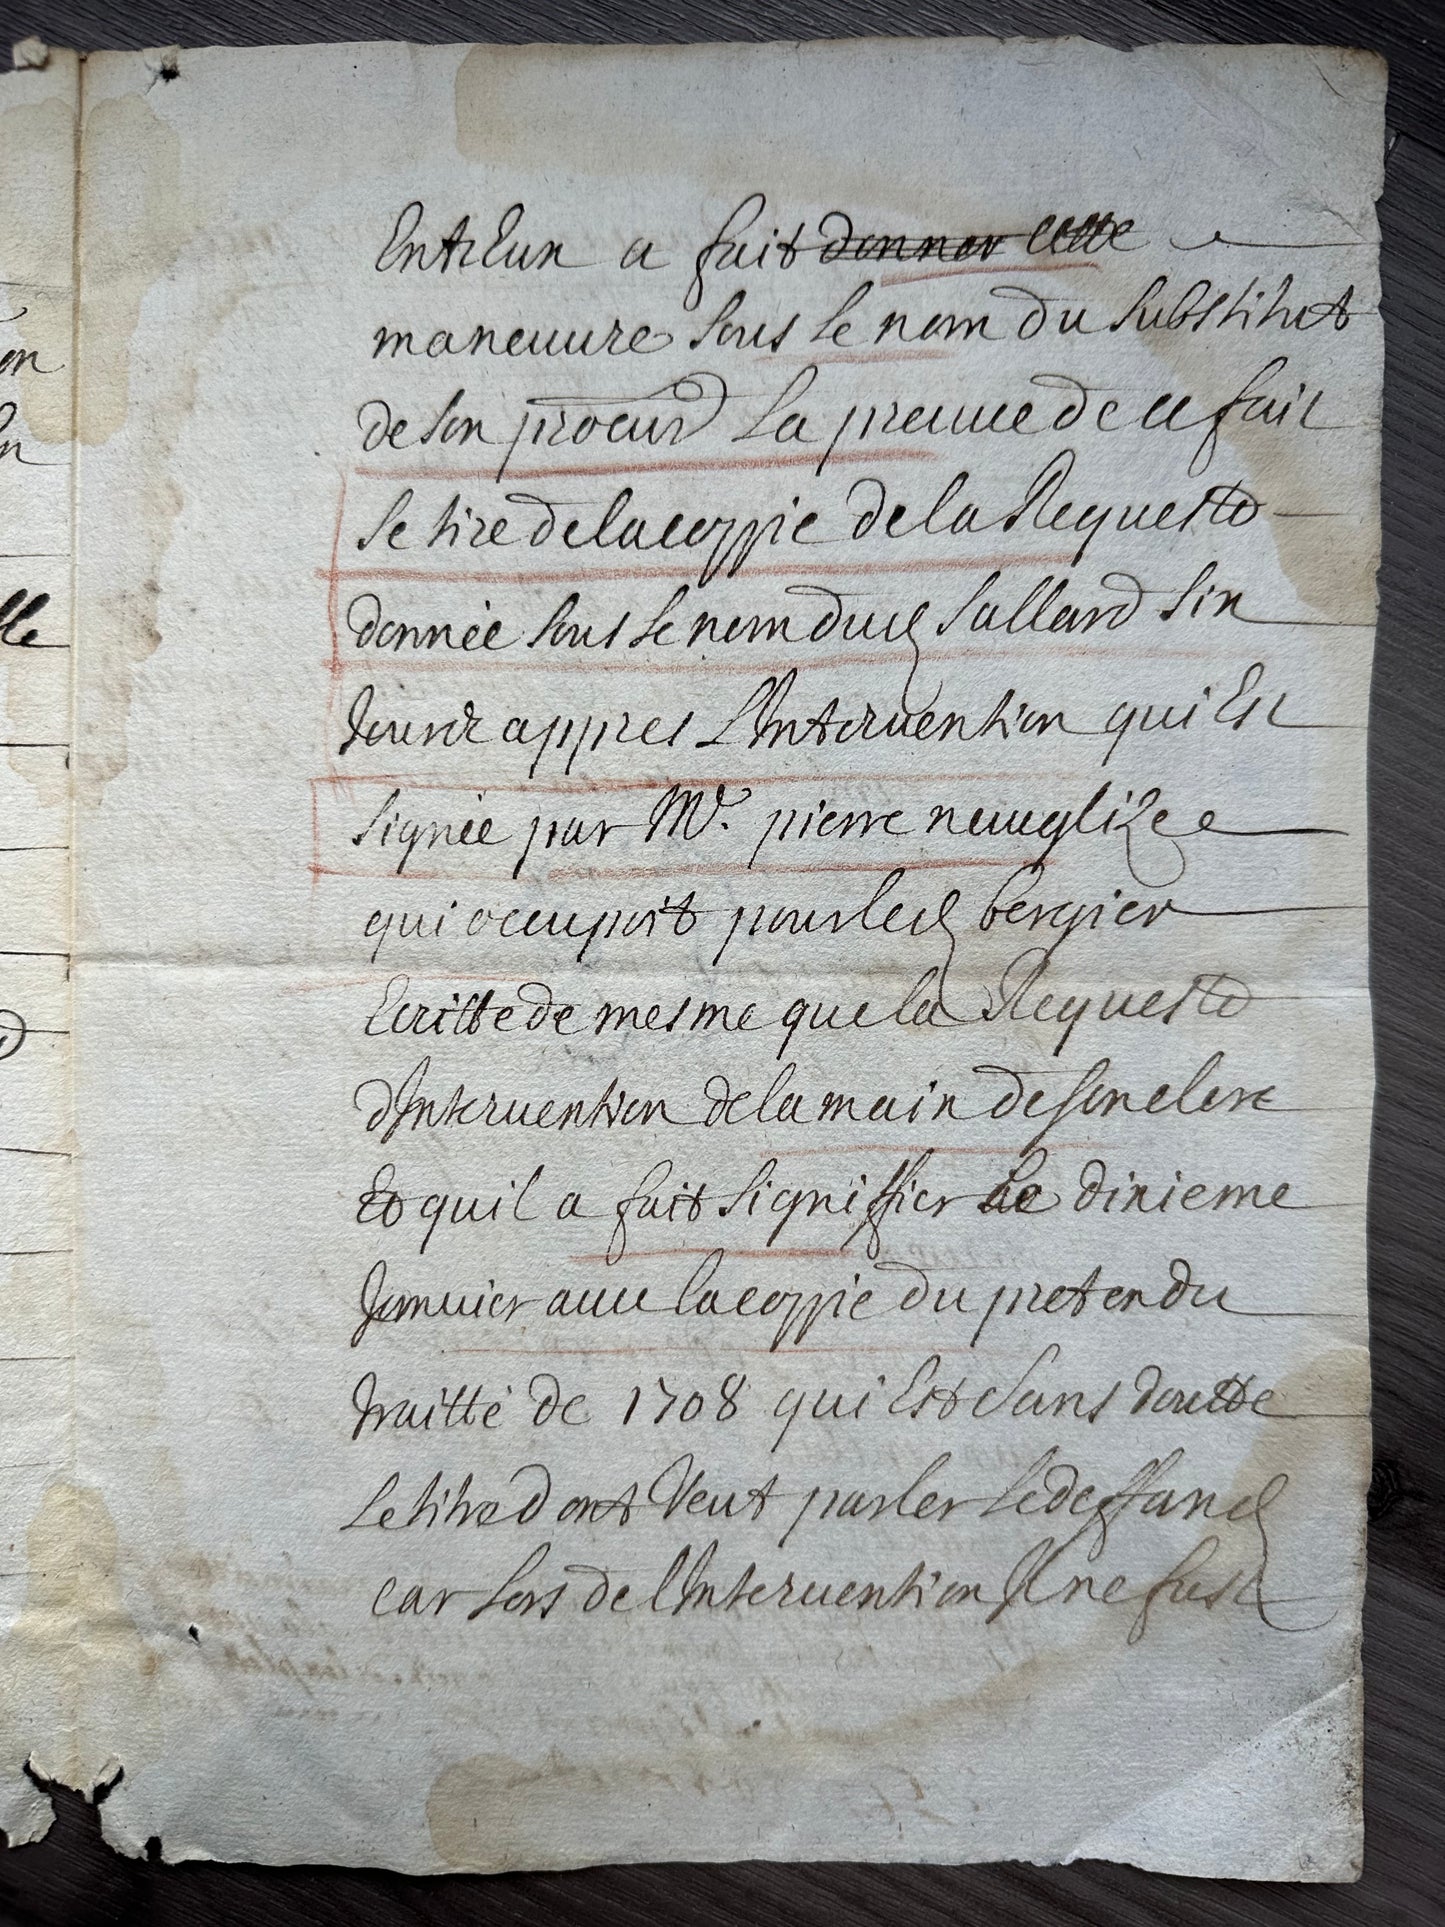 Entreux a fait donner cette
maneuure sous le nom du substitut
de son procur la preuue de ce fait
se tire de la coppie de la Requeste
donnée sous le nom dud Sallard six
Jours appres L'Interuention qui Est
signée par Me. pierre neuuglize
qui occupoit pour led bergier
Ecritte de mesme que la Requeste
d'Interuention de la main de son clerc
Et quil a fait signiffier le dixieme
Januier auec la coppie du pretendu
traitté de 1708 qui Est sans doutte
le titre dont Veut parler le deffand
car lors de l'Interuention Il ne fust
on
lle